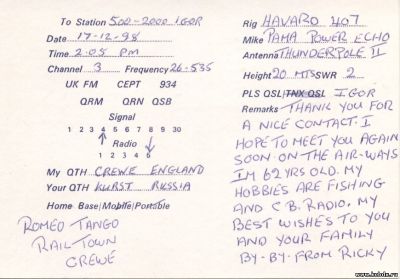 To Station 500-2000 IGOR
Date 17-12-98
Time 2.05 PM
Channel 3 Frequency 26-535
UK FM CEPT 934
QRM QRN QSB
Signal
1 2 3 4 5 6 7 8 9 30
Radio
1 2 3 4 5
My QTH CREWE ENGLAND
Your QTH KURST RUSSIA
Home Base/Mobile/Portable
ROMEO TANGO
RAIL TOWN
CREWE
Rig HAVARD 407
Mike PAMA POWER ECHO
Antenna THUNDERPOLE II
Height 20 MTS SWR 2
PLS QSL/TNX QSL IGOR
Remarks THANK YOU FOR
A NICE CONTACT. I
HOPE TO MEET YOU AGAIN
SOON ON THE AIR-WAYS
IM 62 YRS OLD. MY
HOBBIES ARE FISHING
AND C.B. RADIO. MY
BEST WISHES TO YOU
AND YOUR FAMILY
BY-BY-FROM RICKY